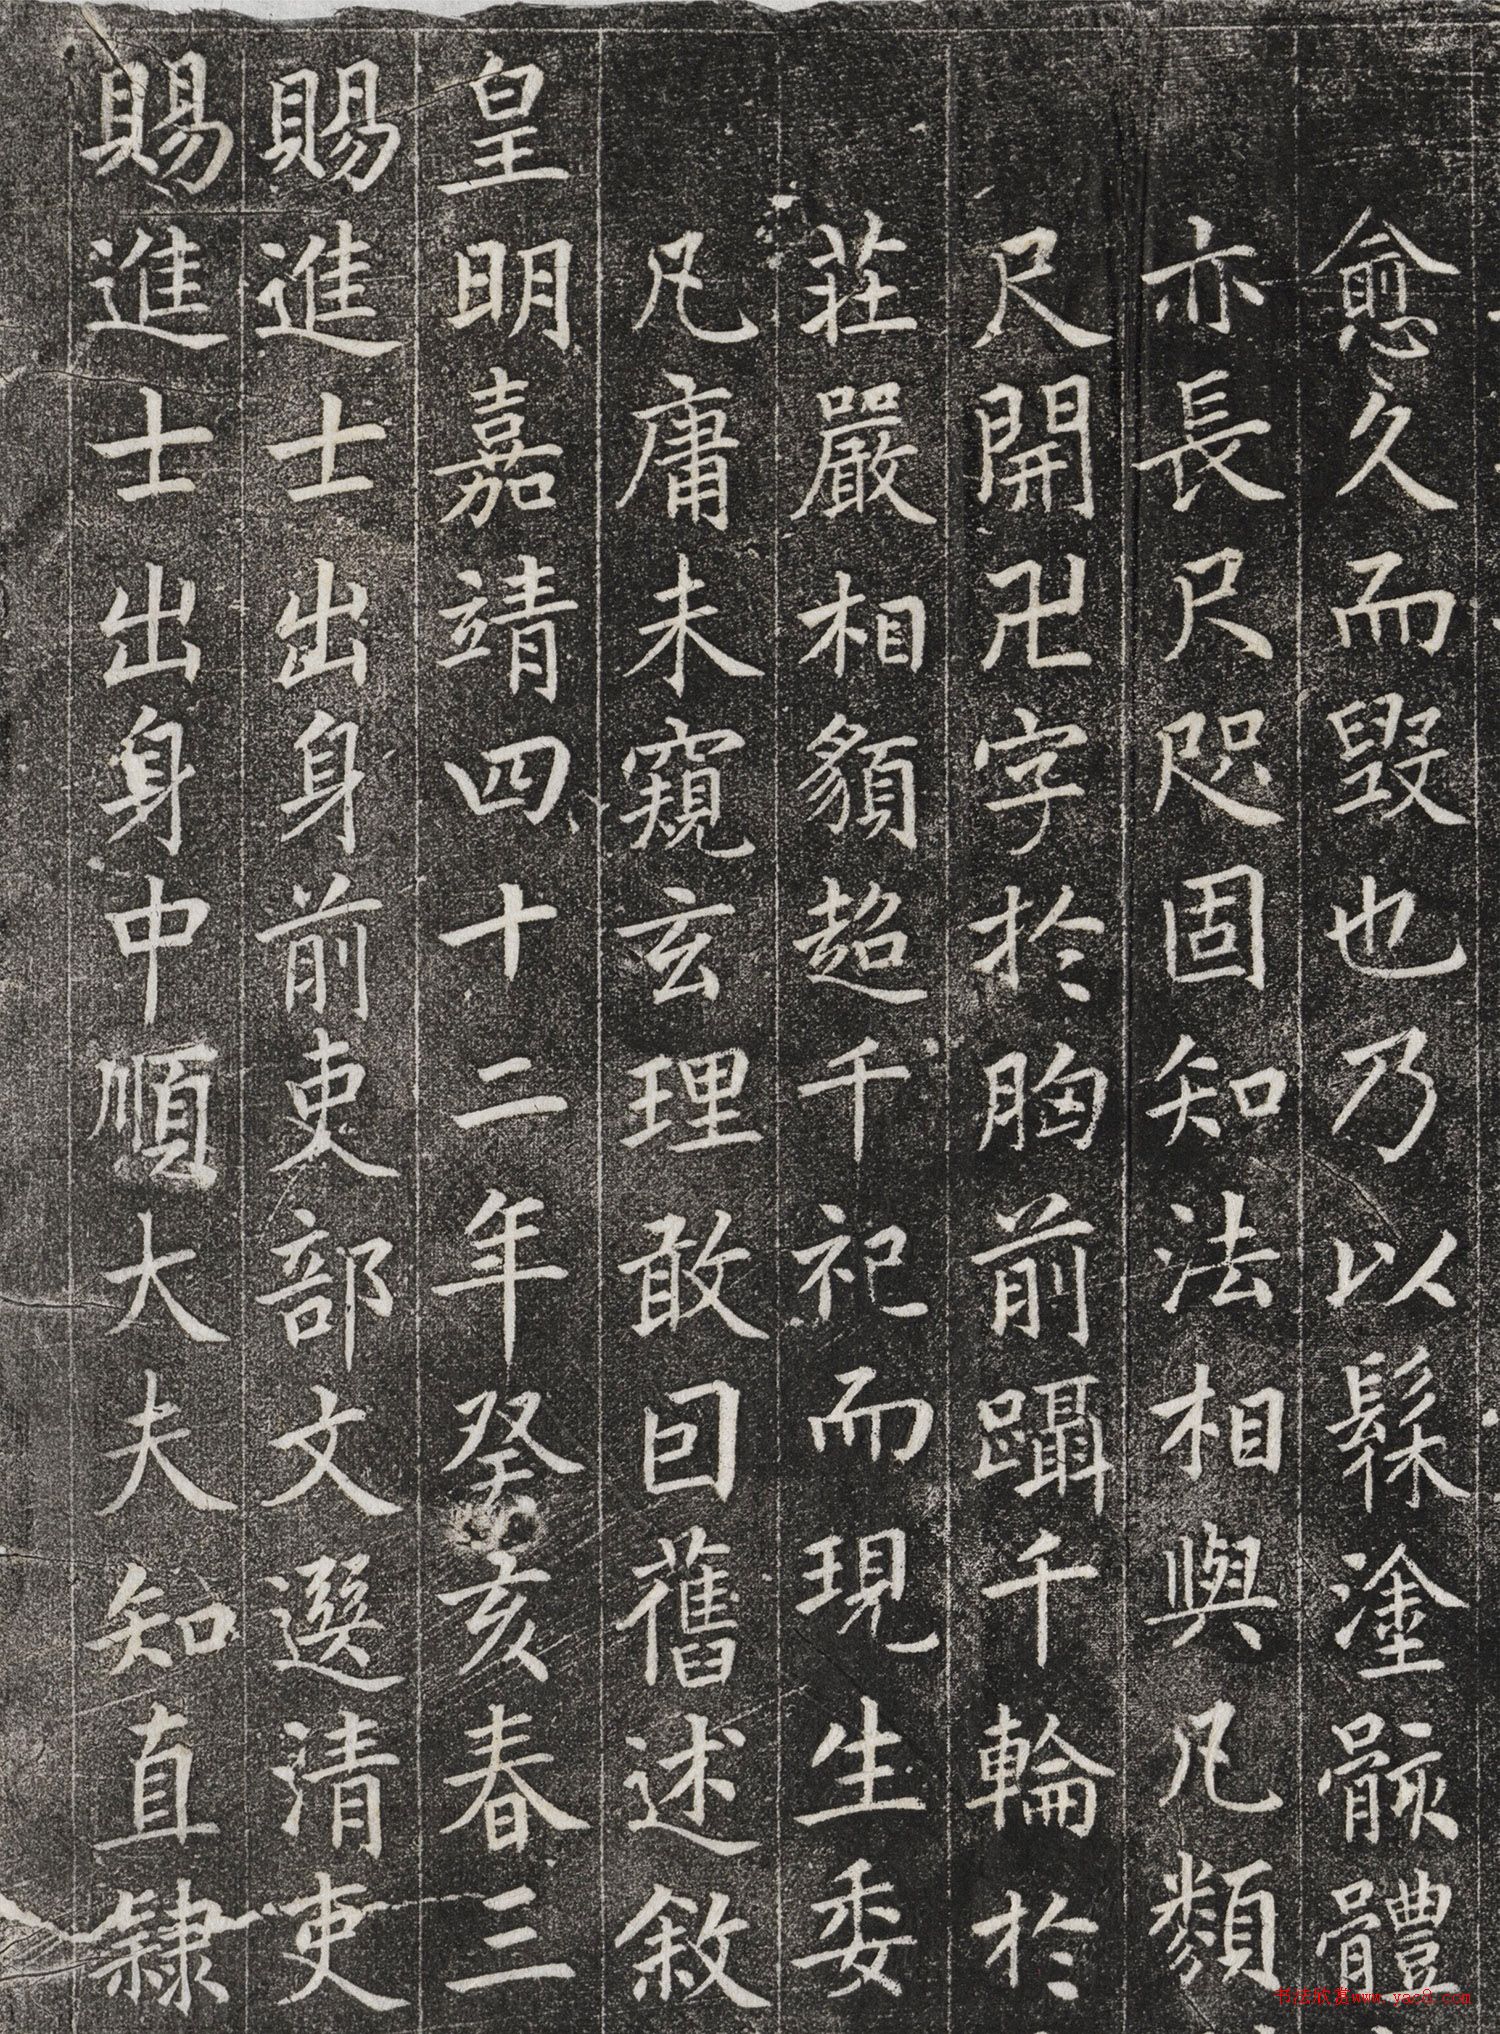 愈久而毀也乃以髹塗骸體
亦長尺咫固知法相與凡類
尺開卍字於胸前躡千輪於
莊嚴相䫉超千祀而現生委
凡庸未窺玄理敢因舊述敘
皇明嘉靖四十二年癸亥春三
賜進士出身前吏部文選清吏
賜進士出身中順大夫知直隸
书法欣赏www.yac8.com